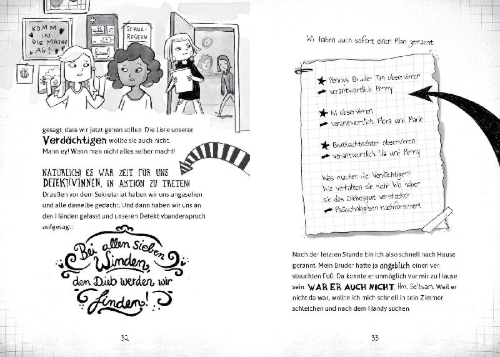 KOMM
IN
DIE MATHE
AG!
SCHUL-
REGELN
gesagt, dass wir jetzt gehen sollen. Die Liste unserer
Verdächtigen wollte sie auch nicht.
Mann ey! Wenn man nicht alles selber macht!
NATÜRLICH! ES WAR ZEIT FÜR UNS
DETEKTIVINNEN, IN AKTION ZU TRETEN!
Draußen vor dem Sekretariat haben wir uns angesehen
und alle dasselbe gedacht. Und dann haben wir uns an
den Händen gefasst und unseren Detektivbandenspruch
aufgesagt:
Bei allen sieben
Winden,
den Dieb werden wir
finden!
32
Wir haben auch sofort einen Plan gemacht:
Pennys Bruder Tim observieren
verantwortlich: Penny
observieren
verantwortlich: Flora und Marie
observieren
verantwortlich: Ida und Penny
Was machen die Verdächtigen?
Wie verhalten sie sich? Wo haben
sie das Diebesgut versteckt?
Nach der letzten Stunde bin ich also schnell nach Hause
gerannt. Mein Bruder hatte ja angeblich einen ver-
stauchten Fuß. Da konnte er unmöglich vor mir zu Hause
sein. WAR ER AUCH NICHT. Hm. Seltsam. Weil er
nicht da war, wollte ich mich schnell in sein Zimmer
schleichen und nach dem Handy suchen.
33